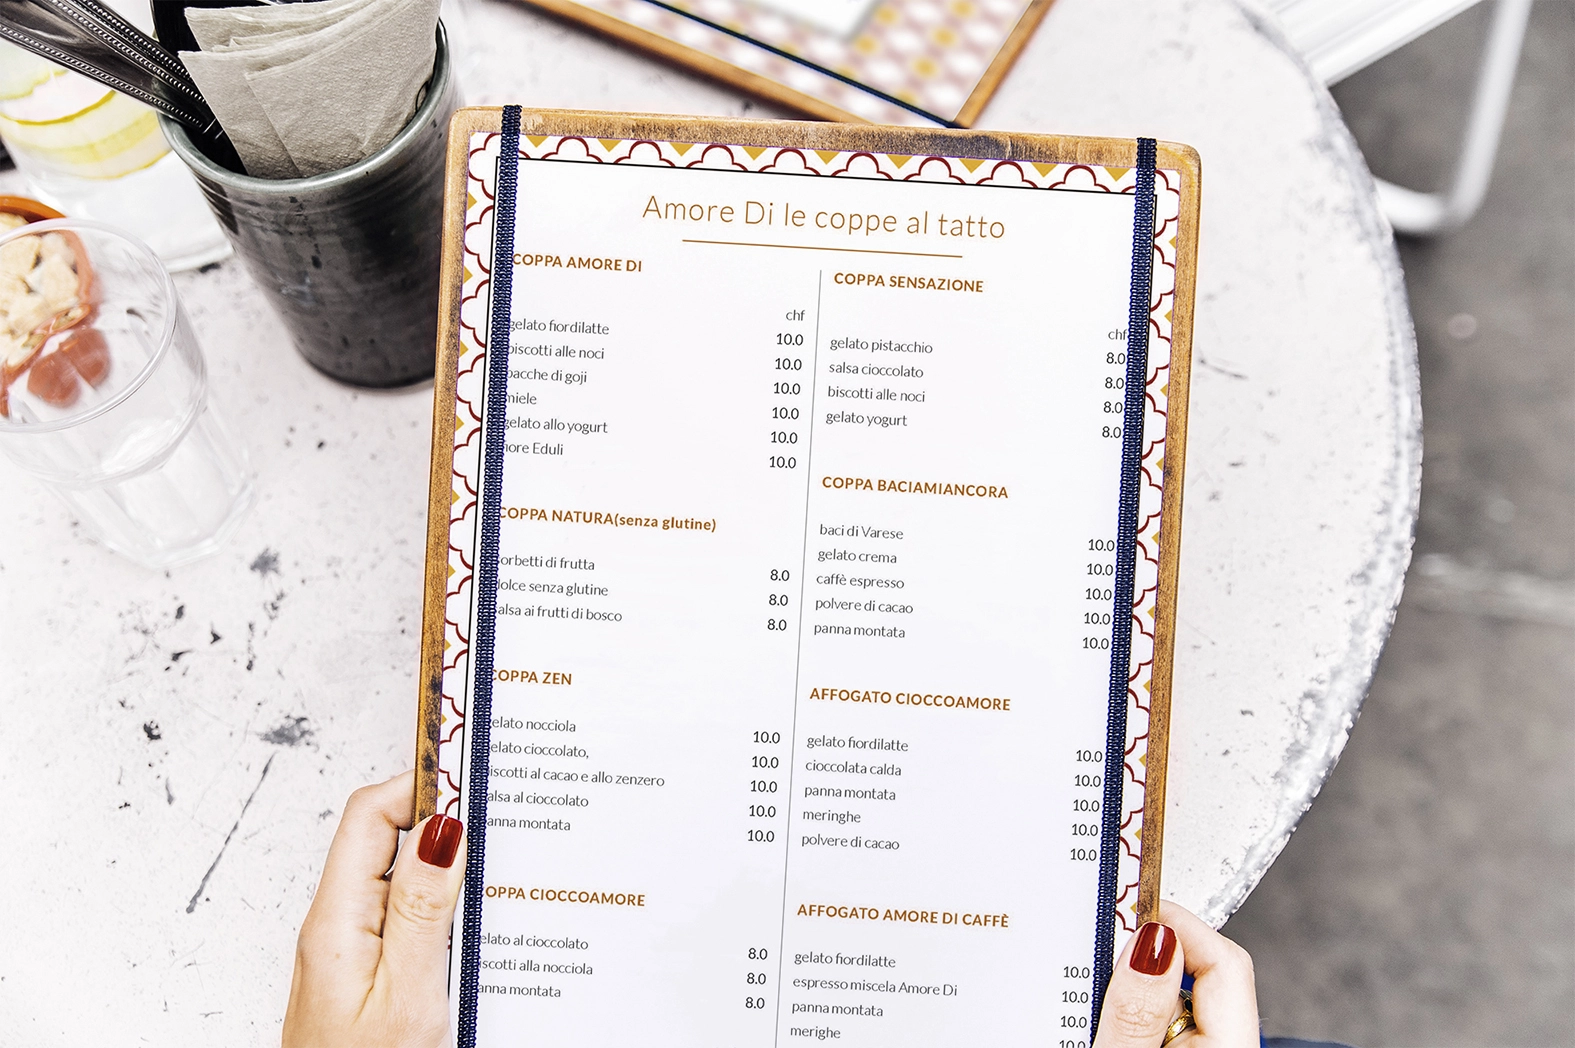 Amore Di le coppe al tatto
COPPA AMORE DI
chf
gelato fiordilatte 10.0
biscotti alle noci 10.0
bacche di goji 10.0
miele 10.0
gelato allo yogurt 10.0
fiore Eduli 10.0
COPPA NATURA(senza glutine)
sorbetti di frutta 8.0
dolce senza glutine 8.0
salsa ai frutti di bosco 8.0
COPPA ZEN
gelato nocciola 10.0
gelato cioccolato, 10.0
biscotti al cacao e allo zenzero 10.0
salsa al cioccolato 10.0
panna montata 10.0
COPPA CIOCCOAMORE
gelato al cioccolato 8.0
biscotti alla nocciola 8.0
panna montata 8.0
COPPA SENSAZIONE
chf
gelato pistacchio 8.0
salsa cioccolato 8.0
biscotti alle noci 8.0
gelato yogurt 8.0
COPPA BACIAMIANCORA
baci di Varese 10.0
gelato crema 10.0
caffè espresso 10.0
polvere di cacao 10.0
panna montata 10.0
AFFOGATO CIOCCOAMORE
gelato fiordilatte 10.0
cioccolata calda 10.0
panna montata 10.0
meringhe 10.0
polvere di cacao 10.0
AFFOGATO AMORE DI CAFFÈ
gelato fiordilatte 10.0
espresso miscela Amore Di 10.0
panna montata 10.0
merighe 10.0